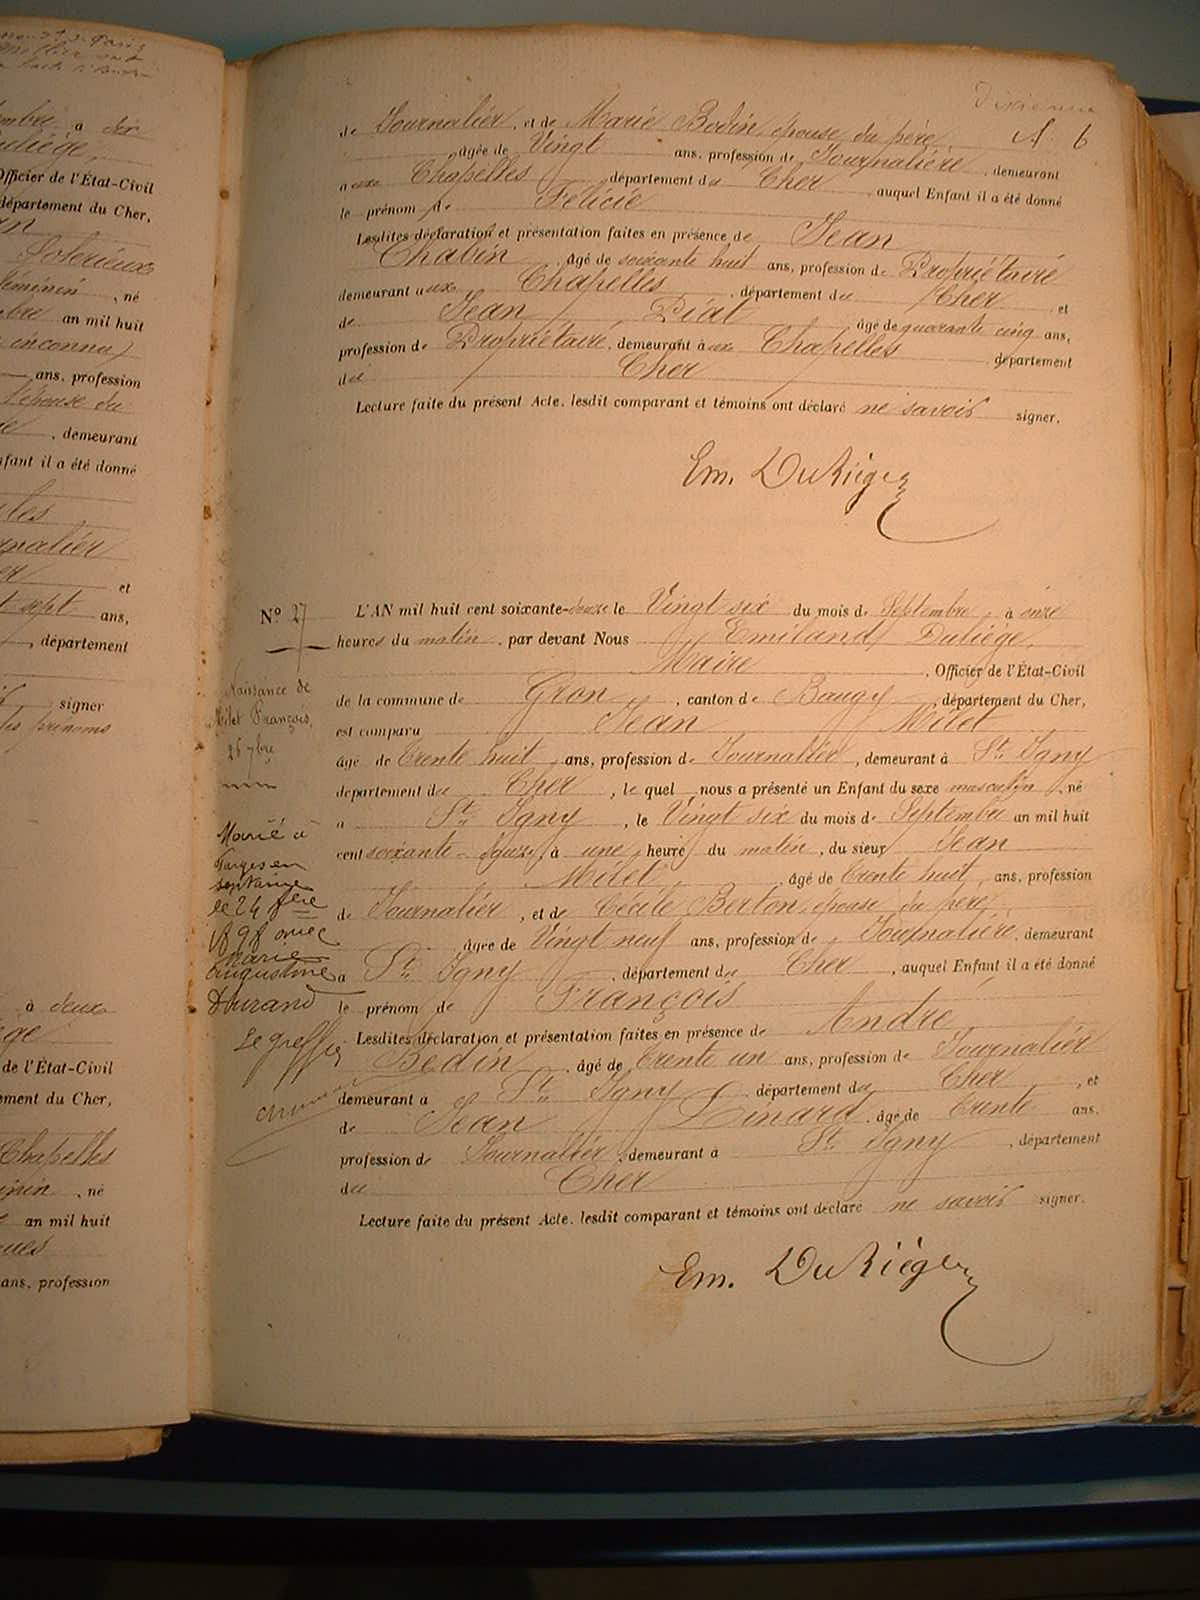 embre, a dix
Duliège,
Officier de l'État-Civil
département du Cher,
Soterieux
féminin, né
an mil huit
inconnu)
ans, profession
l'épouse du
, demeurant
Enfant il a été donné
et
sept ans,
, département
signer
prénoms
à deux
de l'État-Civil
département du Cher,
Chapelles
né
an mil huit
ans, profession
de Journalier, et de Marie Bodin, épouse du père,
âgée de Vingt ans, profession de Journalière, demeurant
a ux Chapelles, département du Cher, auquel Enfant il a été donné
le prénom de Félicie
Lesdites déclaration et présentation faites en présence de Jean
Chabin, âgé de soixante huit ans, profession de Propriétaire
demeurant aux Chapelles, département du Cher, et
de Jean Piat, âgé de quarante cinq ans,
profession de Propriétaire, demeurant à ux Chapelles, département
du Cher
Lecture faite du présent Acte, lesdit comparant et témoins ont déclaré ne savoir signer.
Em. Duliège
N° 27
L'AN mil huit cent soixante-douze le Vingt six du mois de Septembre, à onze
heures du matin, par devant Nous Emiland Duliège,
Maire, Officier de l'État-Civil
de la commune de Gron, canton de Baugy, département du Cher,
est comparu Jean Milet
âgé de trente huit ans, profession de Journalier, demeurant à St Igny
département du Cher, le quel nous a présenté un Enfant du sexe masculin, né
a St Igny, le Vingt six du mois de Septembre an mil huit
cent soixante-douze, à une heure du matin, du sieur Jean
Milet, âgé de trente huit, ans, profession
de Journalier, et de Cécile Berton, épouse du père,
âgée de Vingt neuf ans, profession de Journalière, demeurant
a St Igny, département du Cher, auquel Enfant il a été donné
le prénom de François
Lesdites déclaration et présentation faites en présence de André
Bedin, âgé de trente un ans, profession de Journalier
demeurant a St Igny, département du Cher, et
de Jean Linard, âgé de trente ans,
profession de Journalier, demeurant à St Igny, département
du Cher
Lecture faite du présent Acte, lesdit comparant et témoins ont déclaré ne savoir signer.
Em. Duliège
Naissance de
Milet François,
26 7bre
Marié à
Farges en
septaine
le 24
1898 avec
Marie
Augustine
Durand
Le greffier